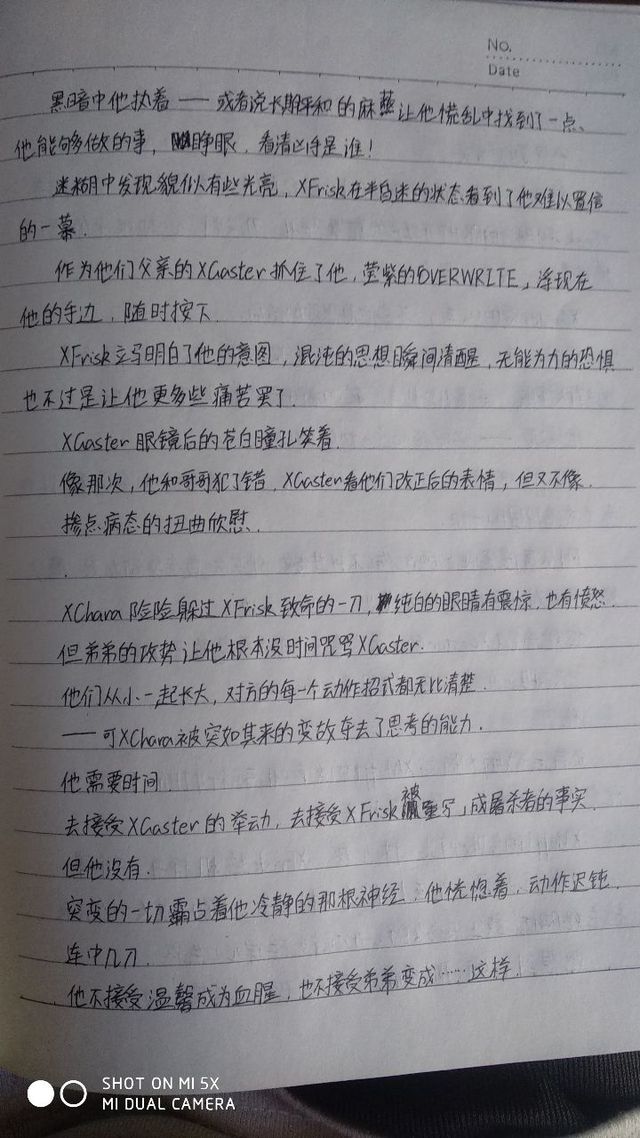 No.
Date
黑暗中他执着——或者说长期平和的麻醉让他慌乱中找到了一点、
他能够做的事，睁眼，看清凶手是谁！
迷糊中发现貌似有些光亮，XFrisk在半昏迷的状态看到了他难以置信
的一幕.
作为他们父亲的XGaster抓住了他，莹紫的「OVERWRITE」浮现在
他的手边，随时按下.
XFrisk立马明白了他的意图，混沌的思想瞬间清醒，无能为力的恐惧
也不过是让他更多些痛苦罢了.
XGaster眼镜后的苍白瞳孔笑着.
像那次，他和哥哥犯了错，XGaster看他们改正后的表情，但又不像.
掺点病态的扭曲欣慰.
.
XChara险险躲过XFrisk致命的一刀，纯白的眼睛有震惊，也有愤怒.
但弟弟的攻势让他根本没时间咒骂XGaster.
他们从小一起长大，对方的每一个动作招式都无比清楚.
——可XChara被突如其来的变故夺去了思考的能力.
他需要时间.
去接受XGaster的举动，去接受XFrisk被「重写」成屠杀者的事实.
但他没有.
突变的一切霸占着他冷静的那根神经，他恍惚着，动作迟钝.
连中几刀.
他不接受温馨成为血腥，也不接受弟弟变成……这样！
SHOT ON MI 5X
MI DUAL CAMERA